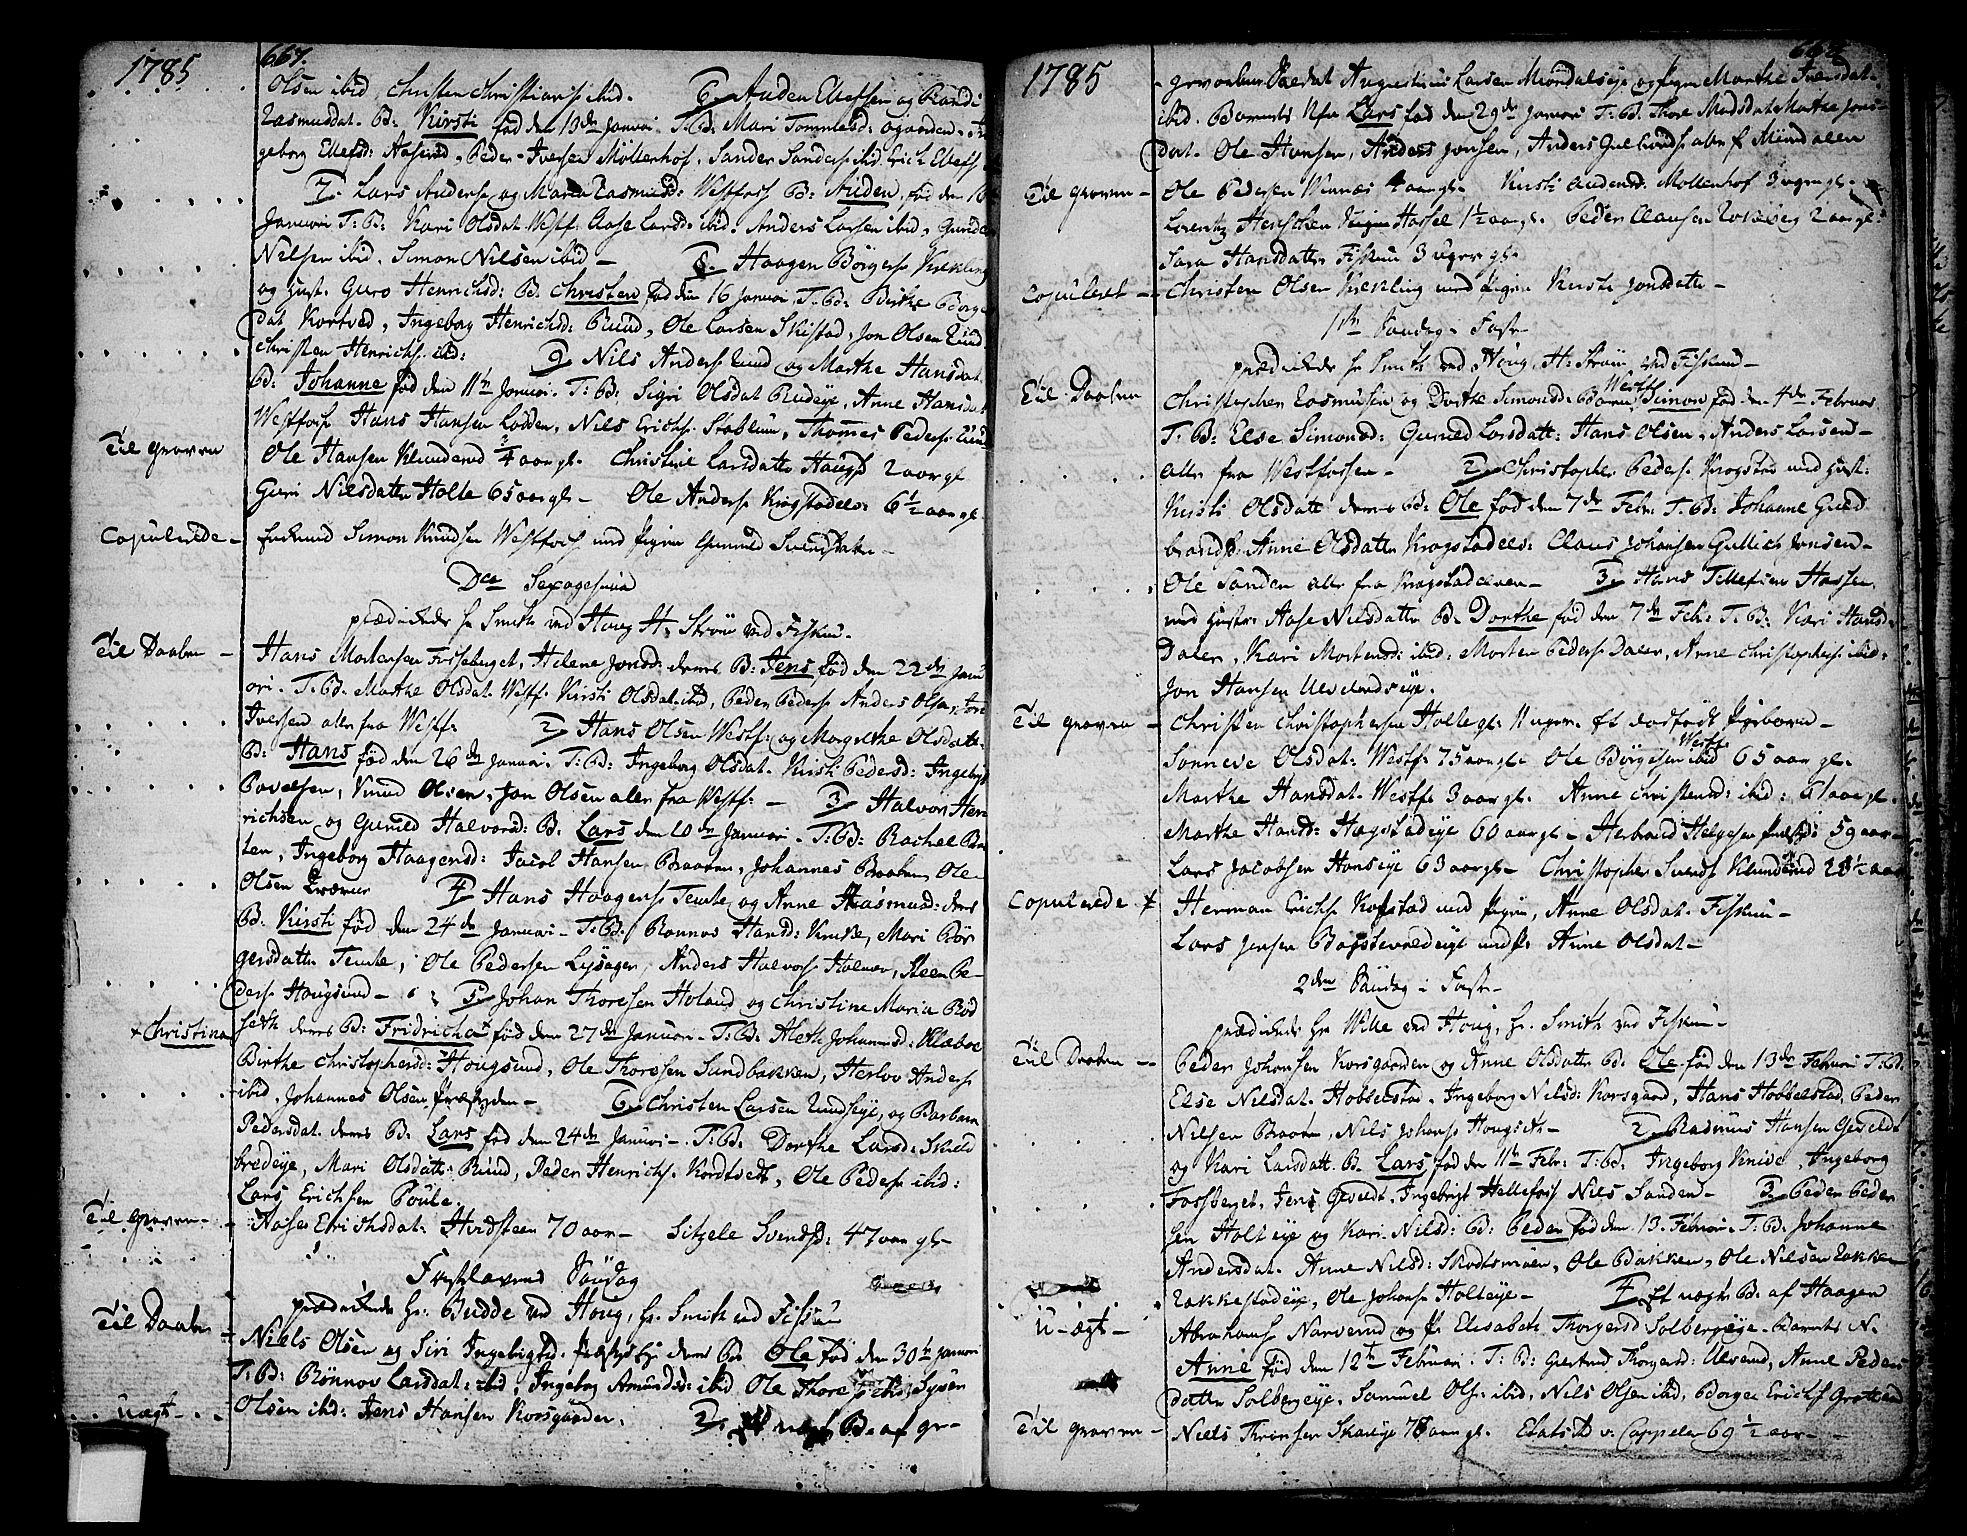 1785
667.
Olsen ibid, Christen Christians. ibid. 6, Auden Ellefsen og Randi
Rasmusdat. B: Kirsti fød den 13de Januari. T: B: Mari Tommesd:
geborg Ellefsd: Aaserud, Peder Iversen Möllenhof, Sander Sanders. ibid Erich Ellefs.
7. Lars Anders. og Maria Rasmusd: Westfoss B: Auden, fød den
Januari T: B: Kari Olsdat. Westf. Aase Larsd: ibid. Anders Larsen ibid, Gunder
Nilsen ibid. Simon Nilsen ibid — 8. Haagen Börgers. Kiekling
og hust. Guro Henrichsd: B. Christen fød den 16 Januari. T: B: Birthe Borge
dat Kortved, Ingeborg Henrichsd: Ruud, Ole Larsen Skistad, Jon Olsen Lund
Christen Henrichs. ibid: 9, Nils Anders. Lund og Marthe Hansdat.
B: Johanne fød den 11te Januari. T: B: Sigri Olsdat Rudeye, Anne Hansdat
Westfoss Hans Hansen Lodden, Nils Erichs. Stablum, Thomes Peders. Lund
Til Graven
Ole Hansen Klunderud 3/4 aar gl. Christine Larsdatter Haugs 2 aar gl
Guri Nilsdatter Holte 65 aar gl — Ole Anders. Krogstadels: 6½ aar gl.
Copulerede — Enkemd Simon Knudsen Westfoss med Pigen Gunild Svendsdatter —
Dca Sexagesima
prædikede hr Smith ved Houg H: Ström ved Fiskum.
Til Daaben —
Hans Mortensen Fosseberget, Helene Jonsd: deres B: Jens fød den 22de Janu
ari. T: B. Marthe Olsdat. Westf. Kirsti Olsdat. ibid, Peder Peders. Anders Ols. Tore
Iversen alle fra Westf. 2, Hans Olsen Westf: og Margrethe Olsdatt.
B: Hans fød den 26de Januari. T: B: Ingeborg Olsdat. Kirsti Pedersd: Ingebrigt
Povelsen, Knud Olsen, Jon Olsen alle fra Westf: — 3, Halvor Hen
richsen og Gunild Halvorsd: B: Lars den 20de Januari — T: B: Rachel Bra
ten, Ingeborg Haagensd: Jacob Hansen Braaten, Johannes Braaten, Ole
Olsen 4, Hans Haagens. Temte og Anne Rasmusd: deres
B. Kirsti fød den 24de Januari — T: B: Rannov Hansd: Mari Bör
gersdatter Temte, Ole Pedersen Lysager, Anders Halvors. Holmen, Steen Pe-
ders. Hougsund — 5, Johan Thoresen Holand og Christine Maria Rod
+ Christina
seth deres B: Fridricha fød den 27de Januari — T: B: Aleth Johannsd: Klæboe
Birthe Christophersd: Hougsund, Ole Thoresen Sandbakken, Herlov Anders.
ibid, Johannes Olsen — 6, Christen Larsen Lundseye, og Barbara
Pedersdat. deres B: Lars fød den 24de Januari — T: B: Dorthe Larsd: Skield
bredeye, Mari Olsdatter Ruud, Peder Henrichs. Kordtvedt, Ole Peders. ibid:
Lars Erichsen Poule.
Til Graven —
Aase Erichsdat: Hvidsteen 70 aar — Sitzele Svendsd: 47 aar gl —
Fastelavens Söndag
prædikede hr. Budde ved Houg, hr. Smith ved Fiskum
Til Daaben —
Niels Olsen og Siri Ingebrigtsd. deres B: Ole fød den 30te Januari
T: B: Rönnov Larsdat: ibid, Ingebor Amundsd: ibid Ole Thore
Olsen ibid: Jens Hansen Korsgaarden. 2, Et uægt B. af ge-
uægt —
1785
668
Augustinus Larsen Miöndalseye og Pigen Marthe Iversdat.
ibid. Barnets Nafn Lars fød den 29de Januari T: B: Thore Madsdat. Marthe Jens
dat. Ole Hansen, Anders Jonsen, Anders Gulbrands. alle f Miöndalen
Til Graven —
Ole Pedersen Vinnæs 4 aar gl. Kirsti Audensd: Möllenhof 3 uger gl.
Lorentz Henschen Hassel 1½ aar gl. Peder Clausen 2 aar gl:
Sara Hansdatter Fiskum 3 uger gl.
Copuleret —
Christen Olsen Kiekling med Pigen Kirsti Jonsdatter —
1ste Söndag i Faste
prædikede hr Smith ved Houg, H: Ström ved Fiskum —
Til Daaben
Christopher Rasmusen og Dorthe Simonsd: Westf. Barn Simon fød den 4de Februar
T: B: Else Simonsd: Gunild Larsdatt: Hans Olsen, Anders Larsens —
alle fra Westfossen — 2, Christopher Peders. Krogstad med hust:
Kirsti Olsdatt deres B: Ole fød den 7de Febr. T. B: Johanne Guld
brandsd. Anne Olsdatter Krogstadels: Claus Johansen Gullich Jensen —
Ole Sanden alle fra Krogstadelven — 3, Hans Tellefsen Hassen
med hustr: Aase Nilsdatter B. Dorthe fød den 7de Feb: T. B: Kari Hansd
Dalen, Kari Mortensd: ibid: Morten Peders. Dalen, Arne Christophers. ibid.
Jon Hansen Ulvelandseye.
Til Graven —
Christen Christophersen Holte gl: 11 uger. Et dødfödt Pigebarn —
Sönneve Olsdat: Westf. 75 aar gl. Ole Börgesen ibid Westf. 65 aar gl.
Marthe Hansdat. Westfs 3 aar gl. Anne Christensd: ibid: 61 aar gl.
Marthe Hansd: Hagstadeye 60 aar gl — Herbrand Helgesen 59 aar —
Lars Jacobsen Honseye 63 aar gl — Christopher Svends. Klunderud 28½ aar
Copulerede
Herman Erichs. Kopstad med Pigen, Anne Olsdat. Fiskum —
Lars Jensen med P: Anne Olsdat —
2den Söndag i Faste —
prædikede hr Wille ved Houg, hr. Smith ved Fiskum —
Til Daaben —
Peder Johansen Korsgaarden og Anne Olsdatter B: Ole fød den 13de Februari T: B:
Else Nilsdat. Hobbelstad. Ingeborg Nilsd: Korsgaard, Hans Hobbelstad, Peder
Nilsen Braaten, Nils Johans. Hougseth — 2, Rasmus Hansen Geveldt
og Kari Larsdatt: B. Lars fød den 11te Febr: T: B: Ingeborg Knive, Ingeborg
Fossberget, Jens Geveldt, Ingebrigt Hellefoss Nils Sanden — 3, Peder Peder
sen Holteye og Kari Nilsd: B: Peder fød den 13. Februari. T: B: Johanne
Andersdat. Anne Nilsd: Skodtsmoen, Ole Bakken, Ole Nilsen Lakke
Lakkestadeye, Ole Johans. Holteye — 4, Et uægt B. af Haagen
U-ægt —
Abrahams. Narverud og P: Elisabeth Thorgersd Solbergeye. Barnets N.
Anne fød den 12te Februari. T: B: Giertrud Thorgersd: Ulverud, Anne Peders
datter Solbergeye, Samuel Ols. ibid, Nils Olsen ibid, Borger Erichs.
Til Graven —
Niels Thronsen Skareye 78 aar gl. Etatsrd v: Cappelen 69½ aar —